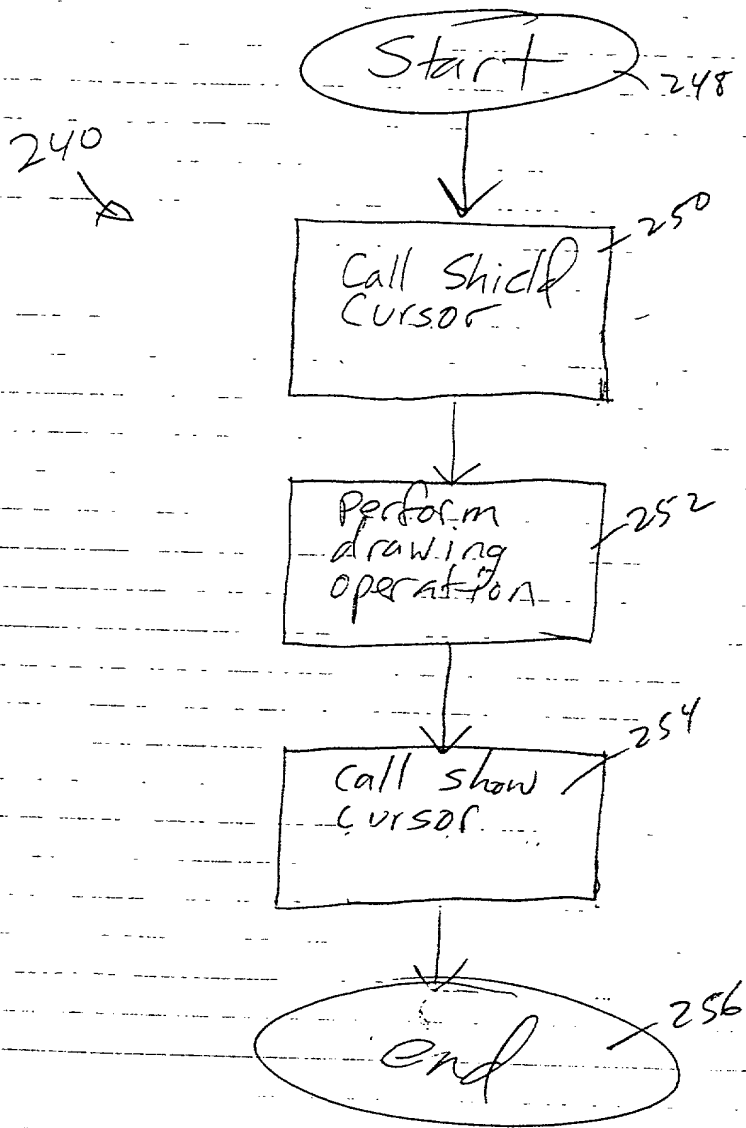 Start
248
240
250
Call Shield
Cursor
252
Perform
drawing
operation
254
Call show
Cursor
256
end